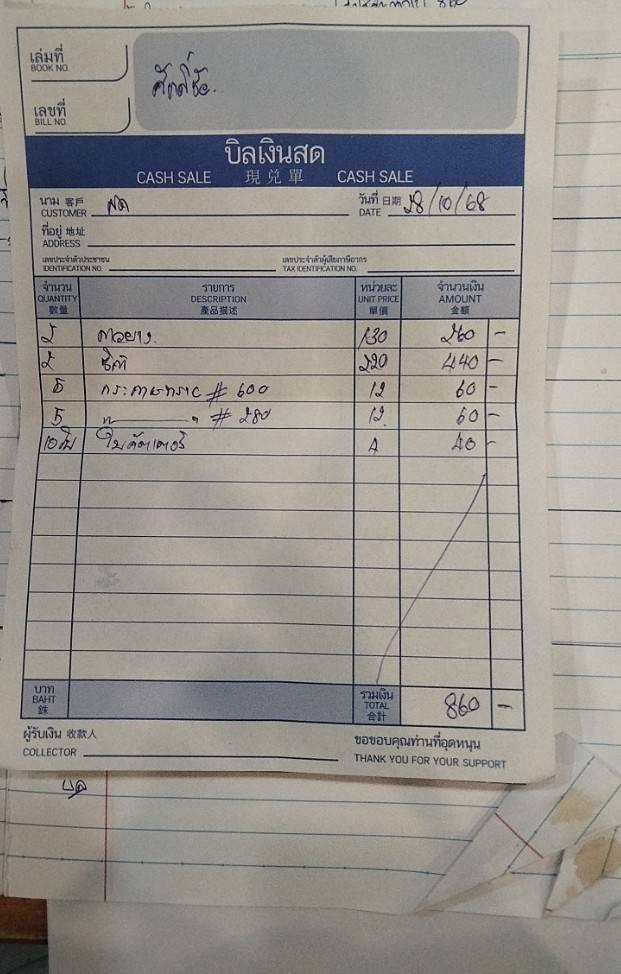 เล่มที่
BOOK NO.
ศักดิ์ชัย.
เลขที่
BILL NO.
บิลเงินสด
CASH SALE 現兌單 CASH SALE
นาม 客戶
CUSTOMER สด
วันที่ 日期
DATE 28/10/68
ที่อยู่ 地址
ADDRESS
เลขประจำตัวประชาชน
IDENTIFICATION NO.
เลขประจำตัวผู้เสียภาษีอากร
TAX IDENTIFICATION NO.
จำนวน รายการ หน่วยละ จำนวนเงิน
QUANTITY DESCRIPTION UNIT PRICE AMOUNT
數量 產品描述 單價 金額
2 กาวยาง 130 260 -
2 220 440 -
5 กระดาษทราย # 600 12 60 -
5 " " # 280 12 60 -
10 ใบคัตเตอร์ 4 40 -
บาท
BAHT
銖
รวมเงิน
TOTAL
合計
860 -
ผู้รับเงิน 收款人
COLLECTOR
ขอขอบคุณท่านที่อุดหนุน
THANK YOU FOR YOUR SUPPORT